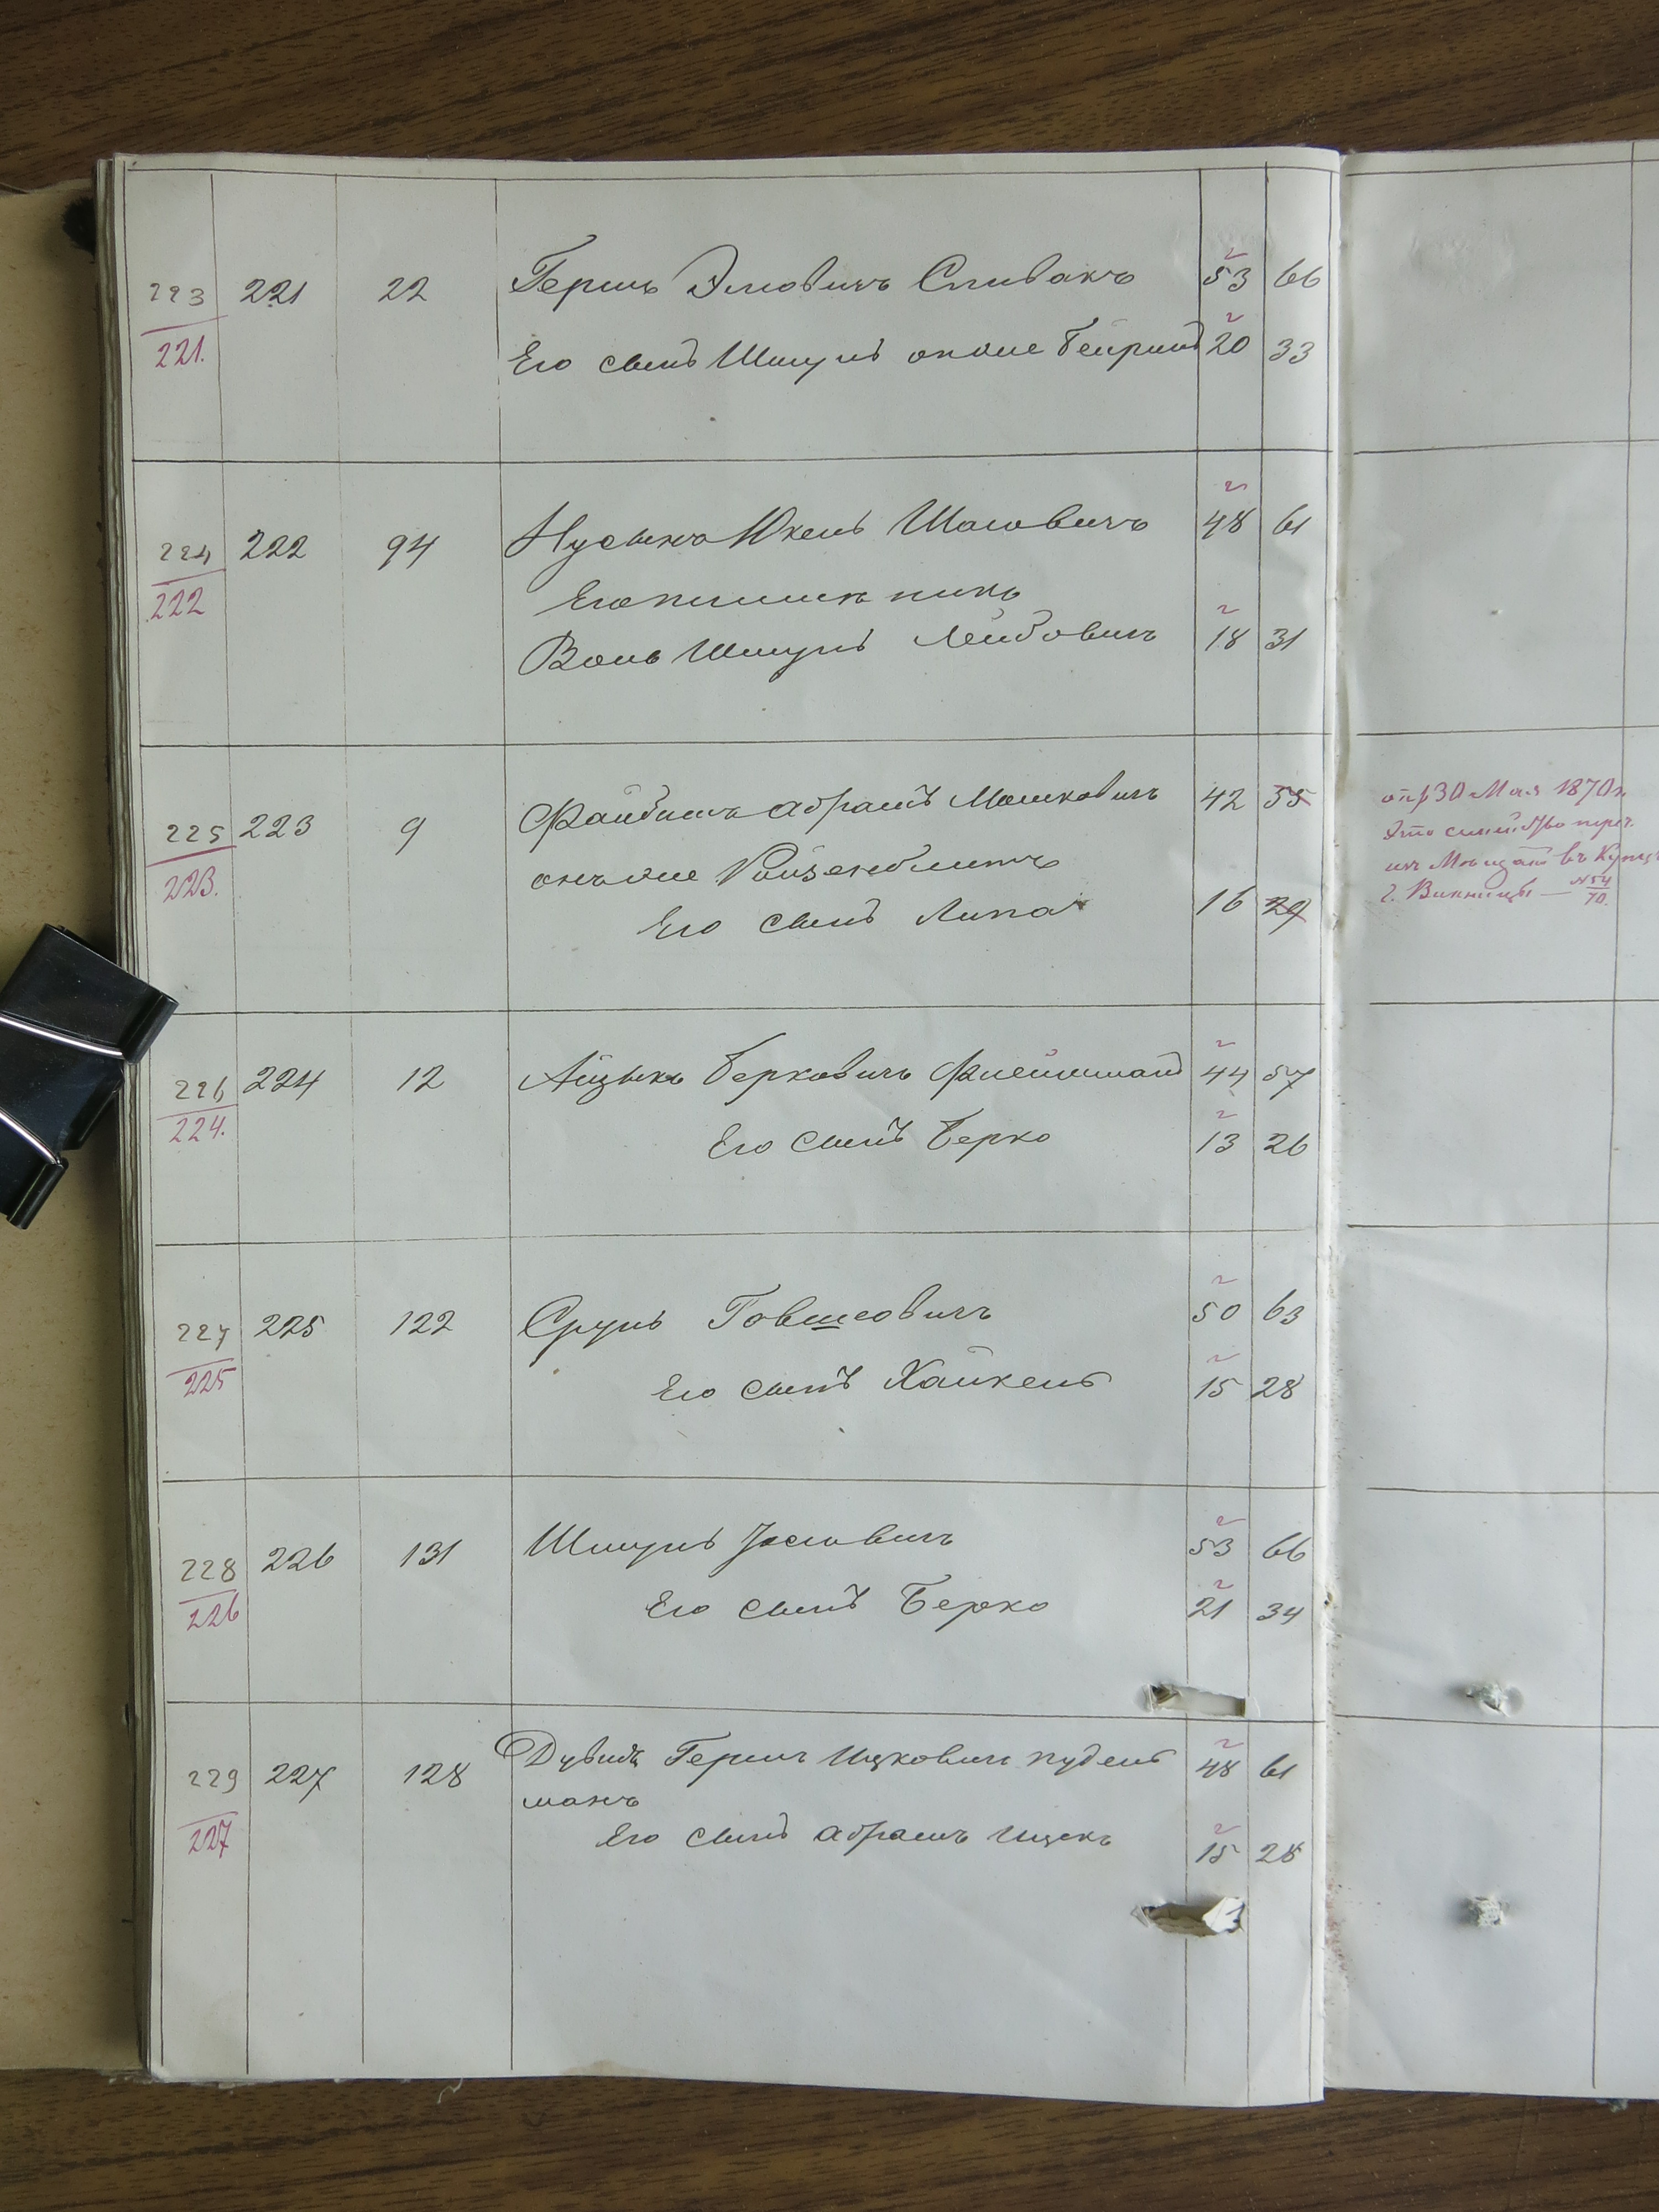 223 221 22 Гершъ Эліовичъ Спивакъ 53 66
221. Его сынъ Шмуль онъ же Бейришъ 20 33
224 222 94 Нусынъ Юкель Шаговичъ 48 61
222 Его племянникъ
Волъ Шмуль Лейбовичъ 18 31
225 223 9 Файбишъ Абрамъ Мошковичъ 42 55
223. онъ же Ройзенблитъ
Его сынъ Липа 16 29
опр 30 Мая 1870 г.
Это семейство переч.
изъ Мѣщанъ въ Купцы
г. Винницы — №54/70.
226 224 12 Айзыкъ Берковичъ Флейшманъ 44 57
224. Его сынъ Берко 13 26
227 225 122 Сруль Говшеовичъ 50 63
225 Его сынъ Хайкель 15 28
228 226 131 Шмуль Іосіовичъ 53 66
226 Его сынъ Берко 21 34
229 227 128 Дувидъ Гершъ Ицковичъ Нудель 48 61
манъ
227 Его сынъ Абрамъ Ицекъ 15 28